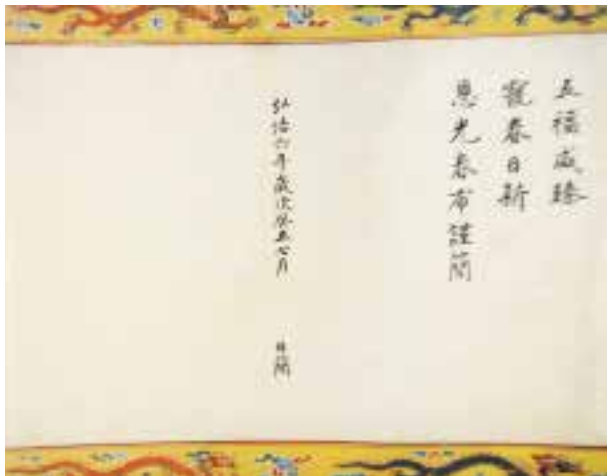 五福咸臻
寵春日新
恩光春布謹簡
弘治六年歲次癸丑七月 日簡